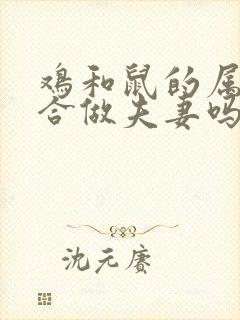 鸡和鼠的属
合做夫妻吗
沈元赛